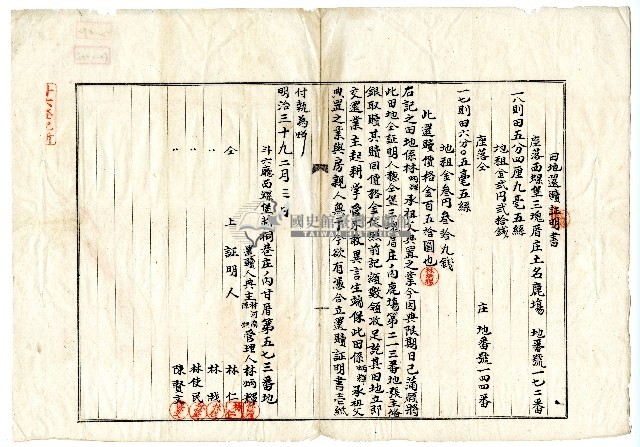 田地還贖証明書
座落西螺堡三塊厝庄土名鹿場　地番號一七二番
一八則田五分四厘九毫五絲
地租金弍円弍拾錢
座落仝　庄　地番號一四四番
一七則田六分〇五毫五絲
地租金叁円叁拾九錢
此還贖價格金百五拾圓也
右記之田地係林炳耀承祖父典置之業今因典限期日已滿願將
此田地仝証明人𫝈仝堡三塊厝庄ノ內鹿場第二一三番地張主
銀取贖其贖回價格金依照前記額數領收足訖其田地立即
交還業主起耕掌管永敢異言生端保此田係炳耀承祖父
典置之業與房親人無干今欲有憑合立還贖証明書壱紙
付執為炤
明治三十九年二月二
斗六廳西螺堡 祠巷庄ノ內甘厝第五七三番地
業贖人典主 管理人林炳耀
仝上証明人　林仁
〃　林
〃　林使民
〃　陳賢文
國史館臺灣文獻館
TAIWAN HISTORICA
斗六